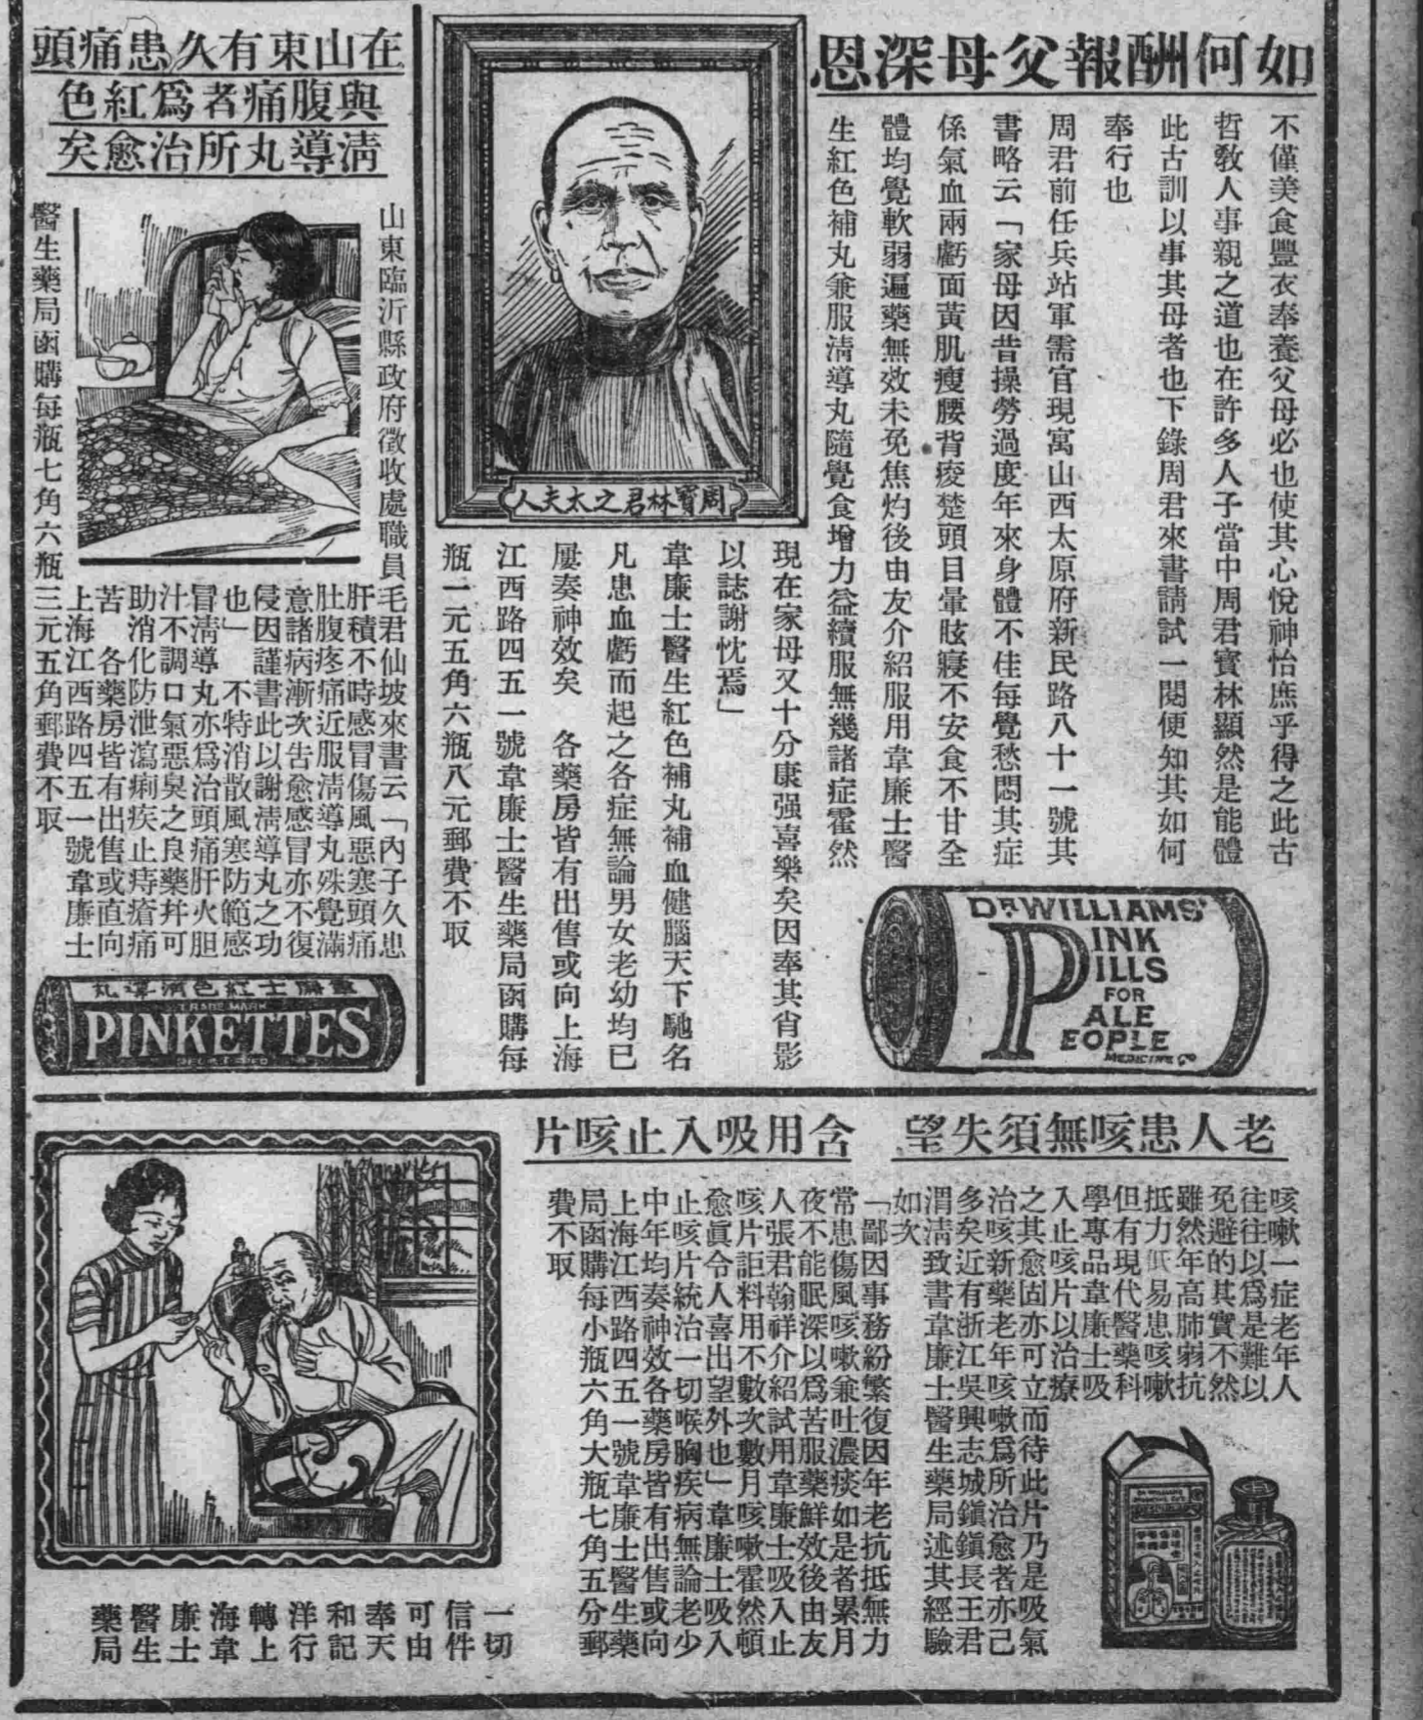 如何酬報父母深恩
不僅美食豐衣奉養父母必也使其心悅神怡庶乎得之此古
哲敎人事親之道也在許多人子當中周君寶林顯然是能體
此古訓以事其母者也下錄周君來書請試一閱便知其如何
奉行也
周君前任兵站軍需官現寓山西太原府新民路八十一號其
書略云「家母因昔操勞過度年來身體不佳每覺愁悶其症
係氣血兩虧面黃肌瘦腰背痠楚頭目暈眩寢不安食不甘全
體均覺軟弱遍藥無效未免焦灼後由友介紹服用韋廉士醫
生紅色補丸兼服清導丸隨覺食增力益續服無幾諸症霍然
周寶林君之太夫人
現在家母又十分康强喜樂矣因奉其肖影
以誌謝忱焉」
韋廉士醫生紅色補丸補血健腦天下馳名
凡患血虧而起之各症無論男女老幼均已
屢奏神效矣 各藥房皆有出售或向上海
江西路四五一號韋廉士醫生藥局函購每
瓶一元五角六瓶八元郵費不取
DR WILLIAMS'
PINK
PILLS
FOR
PALE
PEOPLE
MEDICINE CO
在山東有久患痛頭
與腹痛者爲紅色
淸導丸所治愈矣
山東臨沂縣政府徵收處職員
毛君仙坡來書云「內子久患
肝積不時感冒傷風惡寒頭痛
肚腹疼痛近服淸導丸殊覺滿
意諸病漸次告愈感冒亦不復
侵因謹書此以謝淸導丸之功
也」 不特消散風寒防範感
冒淸導丸亦爲治頭痛肝火胆
汁不調口氣惡臭之良藥幷可
助消化防泄瀉痢疾止痔瘡痛
苦 各藥房皆有出售或直向
上海江西路四五一號韋廉士
醫生藥局函購每瓶七角六瓶
三元五角郵費不取
韋廉士紅色淸導丸
TRADE MARK
PINKETTES
老人患咳無須失望
含用吸入止咳片
咳嗽一症老年人
往往以爲是難以
免避的其實不然
雖然年高肺弱抗
抵力低易患咳嗽
但有現代醫藥科
學專品韋廉士吸
入止咳片以治療
之其愈固亦可立而待此片乃是吸氣
治咳新藥老年咳嗽爲所治愈者亦已
多矣近有浙江吳興志城鎭鎭長王君
渭淸致書韋廉士醫生藥局述其經驗
如次
「鄙因事務紛繁復因年老抗抵無力
常患傷風咳嗽兼吐濃痰如是者累月
夜不能眠深以爲苦服藥鮮效後由友
人張君翰祥介紹試用韋廉士吸入止
咳片詎料用不數次數月咳嗽霍然頓
愈眞令人喜出望外也」韋廉士吸入
止咳片統治一切喉胸疾病無論老少
中年均奏神效各藥房皆有出售或向
上海江西路四五一號韋廉士醫生藥
局函購每小瓶六角大瓶七角五分郵
費不取
一切
信件
可由
奉天
和記
洋行
轉上
海韋
廉士
醫生
藥局